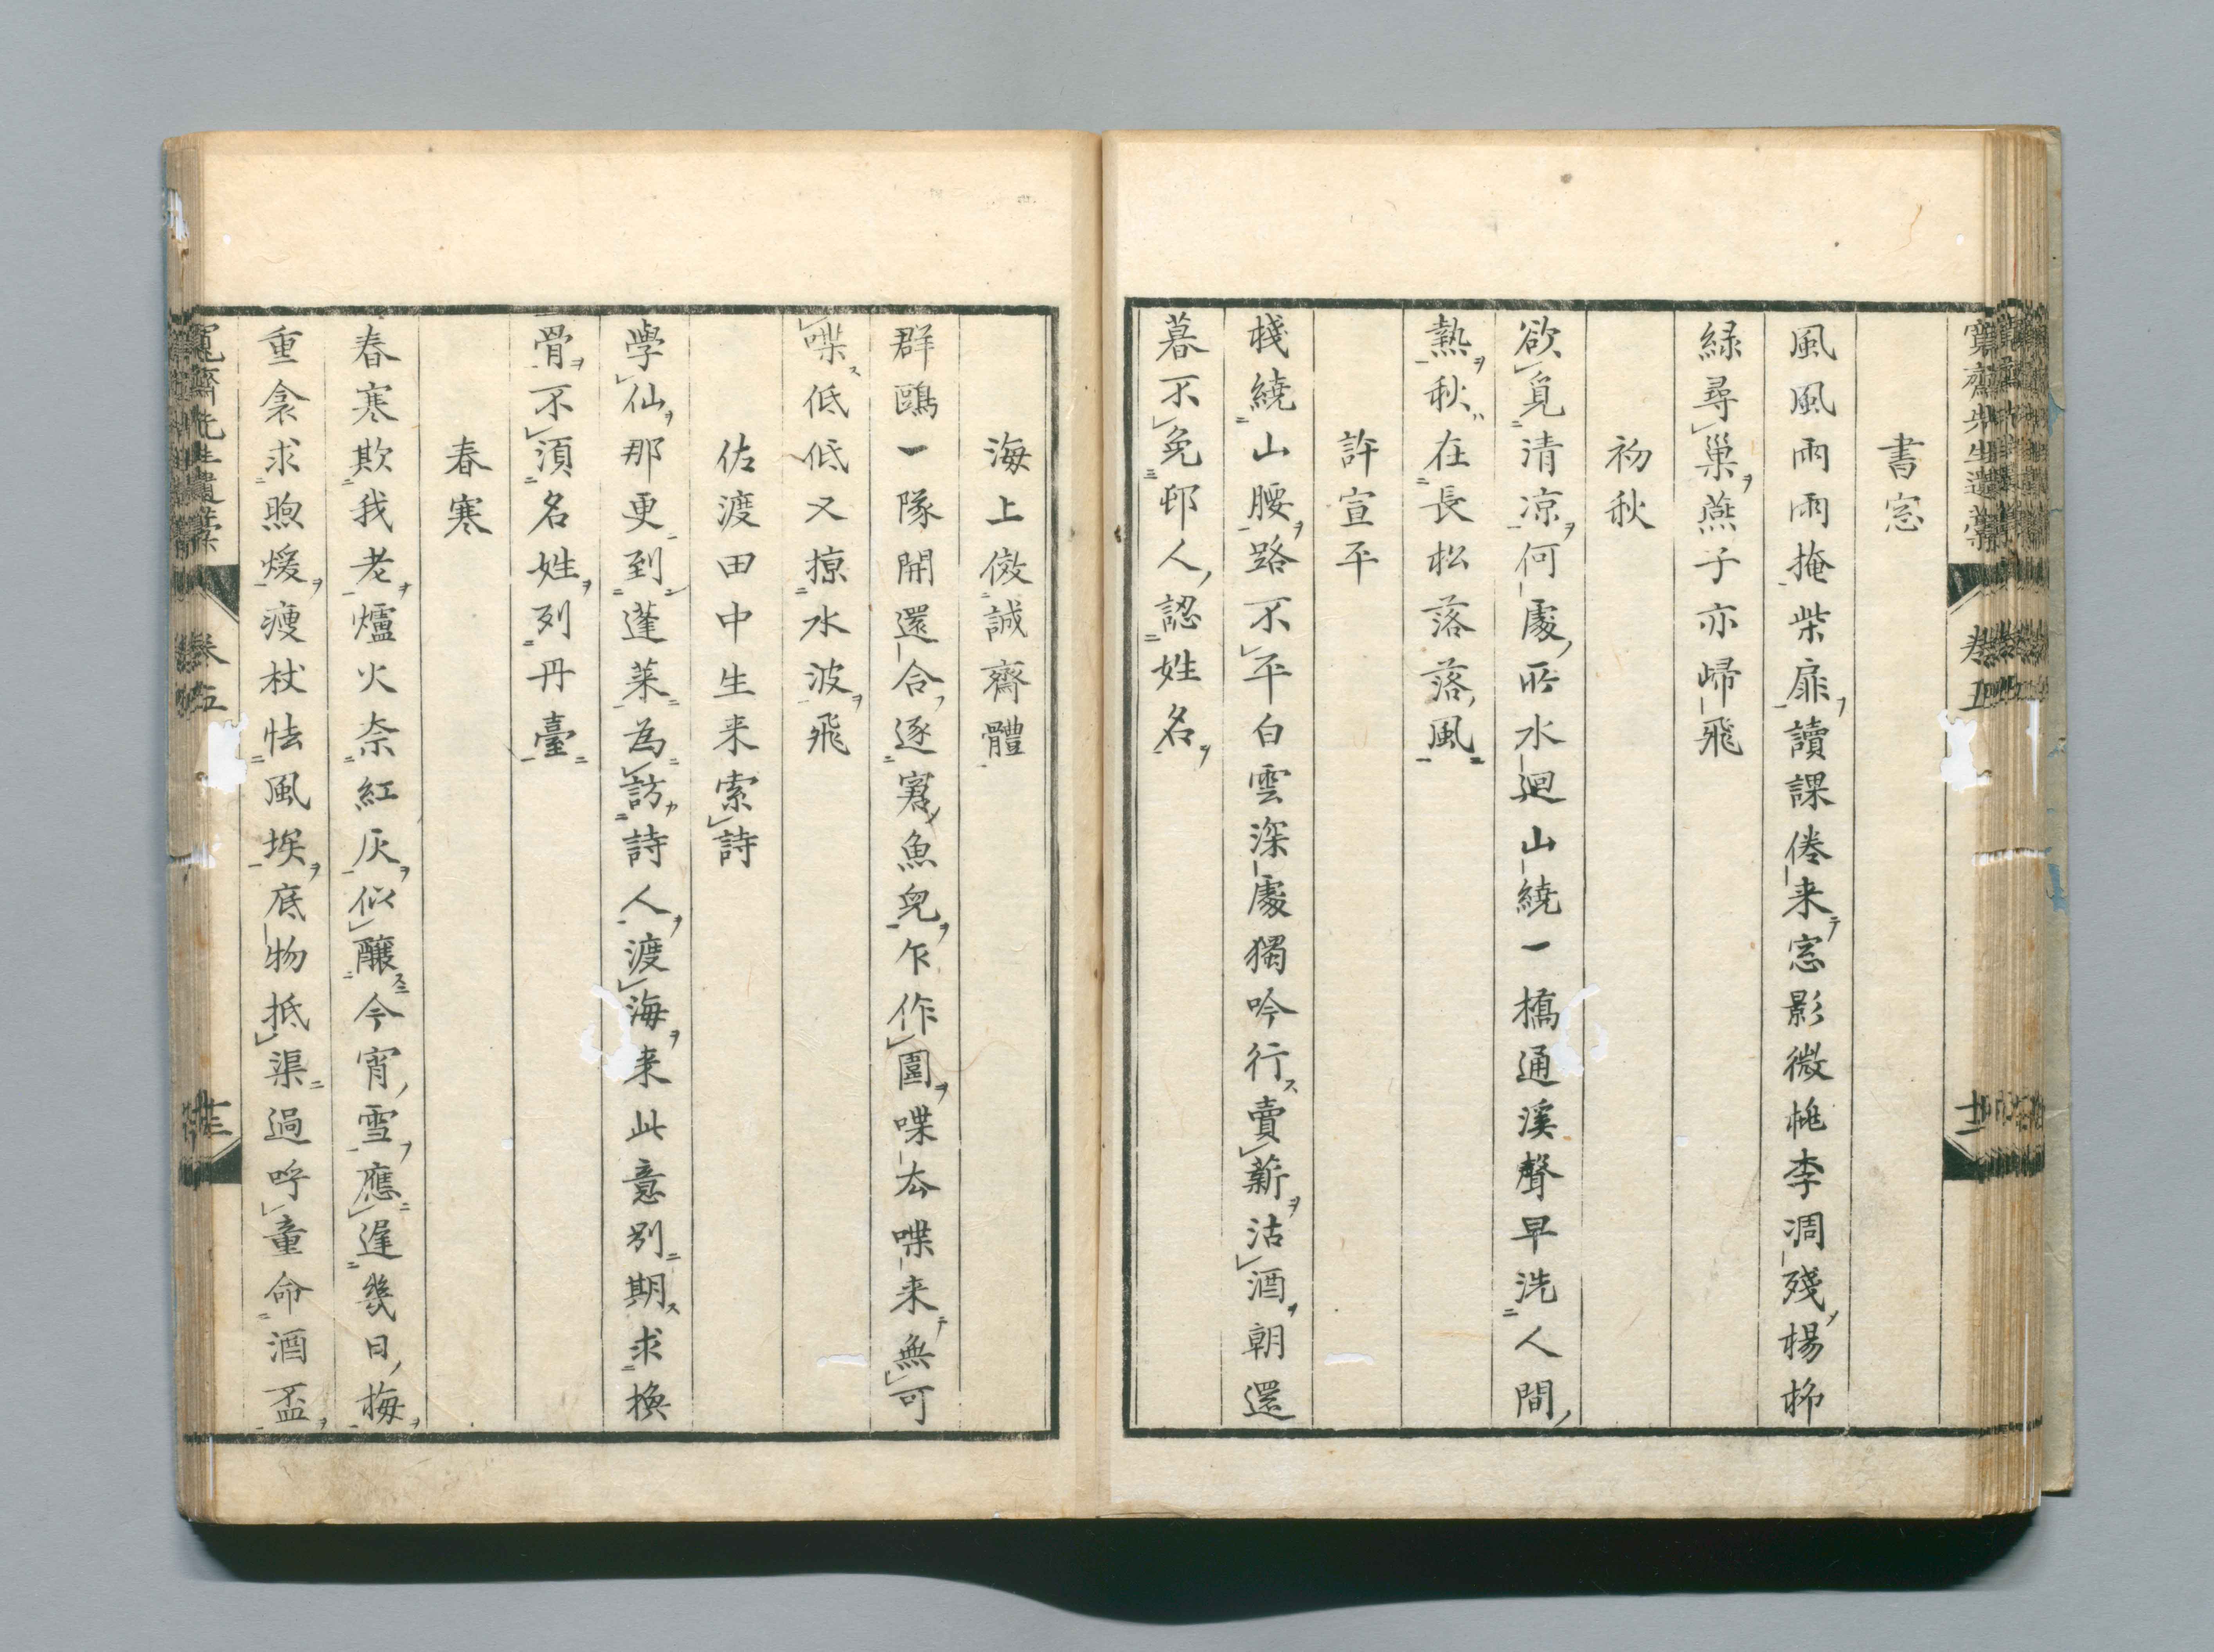 書窓
風風雨雨掩柴扉讀課倦来窓影微桃李凋殘楊柳
緑尋巢燕子亦歸飛
初秋
欲覓清凉何處所水迴山繞一橋通溪聲早洗人間
熱秋在長松落落風
許宣平
棧繞山腰路不平白雲深處獨吟行賣薪沽酒朝還
暮不免邨人認姓名
海上傚誠齋體
群鷗一隊開還合逐寡魚兒乍作圍喋去喋来無可
喋低低又掠水波飛
佐渡田中生来索詩
學仙那更到蓬萊為訪詩人渡海来此意別期求換
骨不須名姓列丹臺
春寒
春寒欺我老爐火奈紅灰似釀今宵雪應遅幾日梅
重衾求煦煖瘦杖怯風埃底物抵渠過呼童命酒盃
卷五